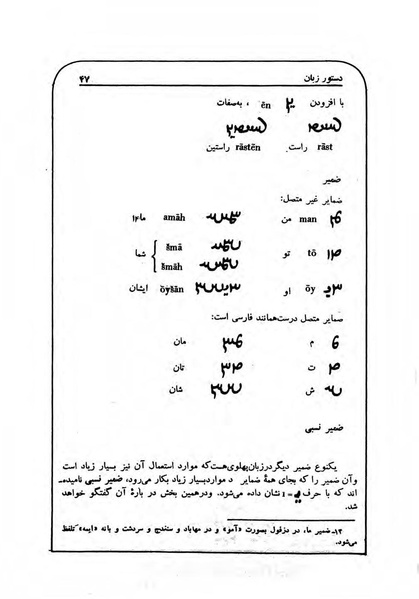 دستور زبان ۴۷
با افزودن ēn ، به‌صفات
rāst راست rāstēn راستین
ضمیر
ضمایر غیر متصل:
man من amāh ما۱۳
tō تو šmā šmāh شما
ōy او ōyšān ایشان
ضمایر متصل درست‌همانند فارسی است:
م مان
ت تان
ش شان
ضمیر نسبی
یکنوع ضمیر دیگردرزبان‌پهلوی‌هست‌که موارد استعمال آن نیز بسیار زیاد است
وآن ضمیر را که بجای همهٔ ضمایر د مواردبسیار زیاد بکار می‌رود، ضمیر نسبی نامیده‌ـ
اند که با حرف = i نشان داده می‌شود. ودرهمین بخش در بارهٔ آن گفتگو خواهد
شد.
۱۳ـ ضمیر ما، در دزفول بصورت «آمو» و در مهاباد و سنندج و سردشت و بانه «ایمه» تلفظ
می‌شود.